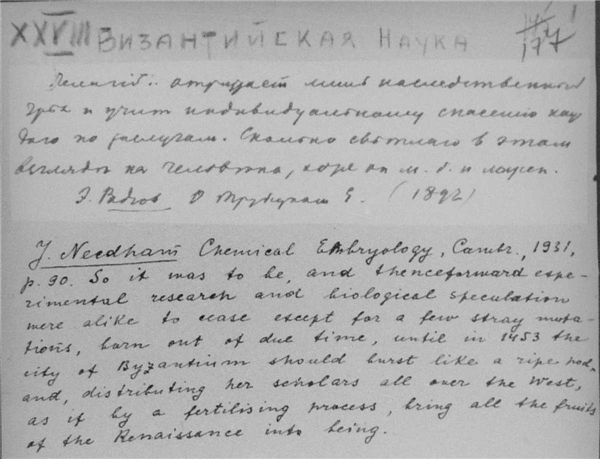 XXVIII ВИЗАНТИЙСКАЯ НАУКА 177
отрицает лишь наследственного
и учит индивидуальному спасению каж
дого по заслугам. Сколько светлаго в этом
взгляде на человека, хотя он м. б. и
Э. Радлов О Трубецком Е. (1892)
J. Needham Chemical Embryology, Cambr., 1931,
p. 90. So it was to be, and thenceforward expe-
rimental research and biological speculation
were alike to cease except for a few stray muta-
tions, born out of due time, until in 1453 the
city of Byzantium should burst like a ripe pod,
and, distributing her scholars all over the West,
as if by a fertilising process, bring all the fruits
of the Renaissance into being.